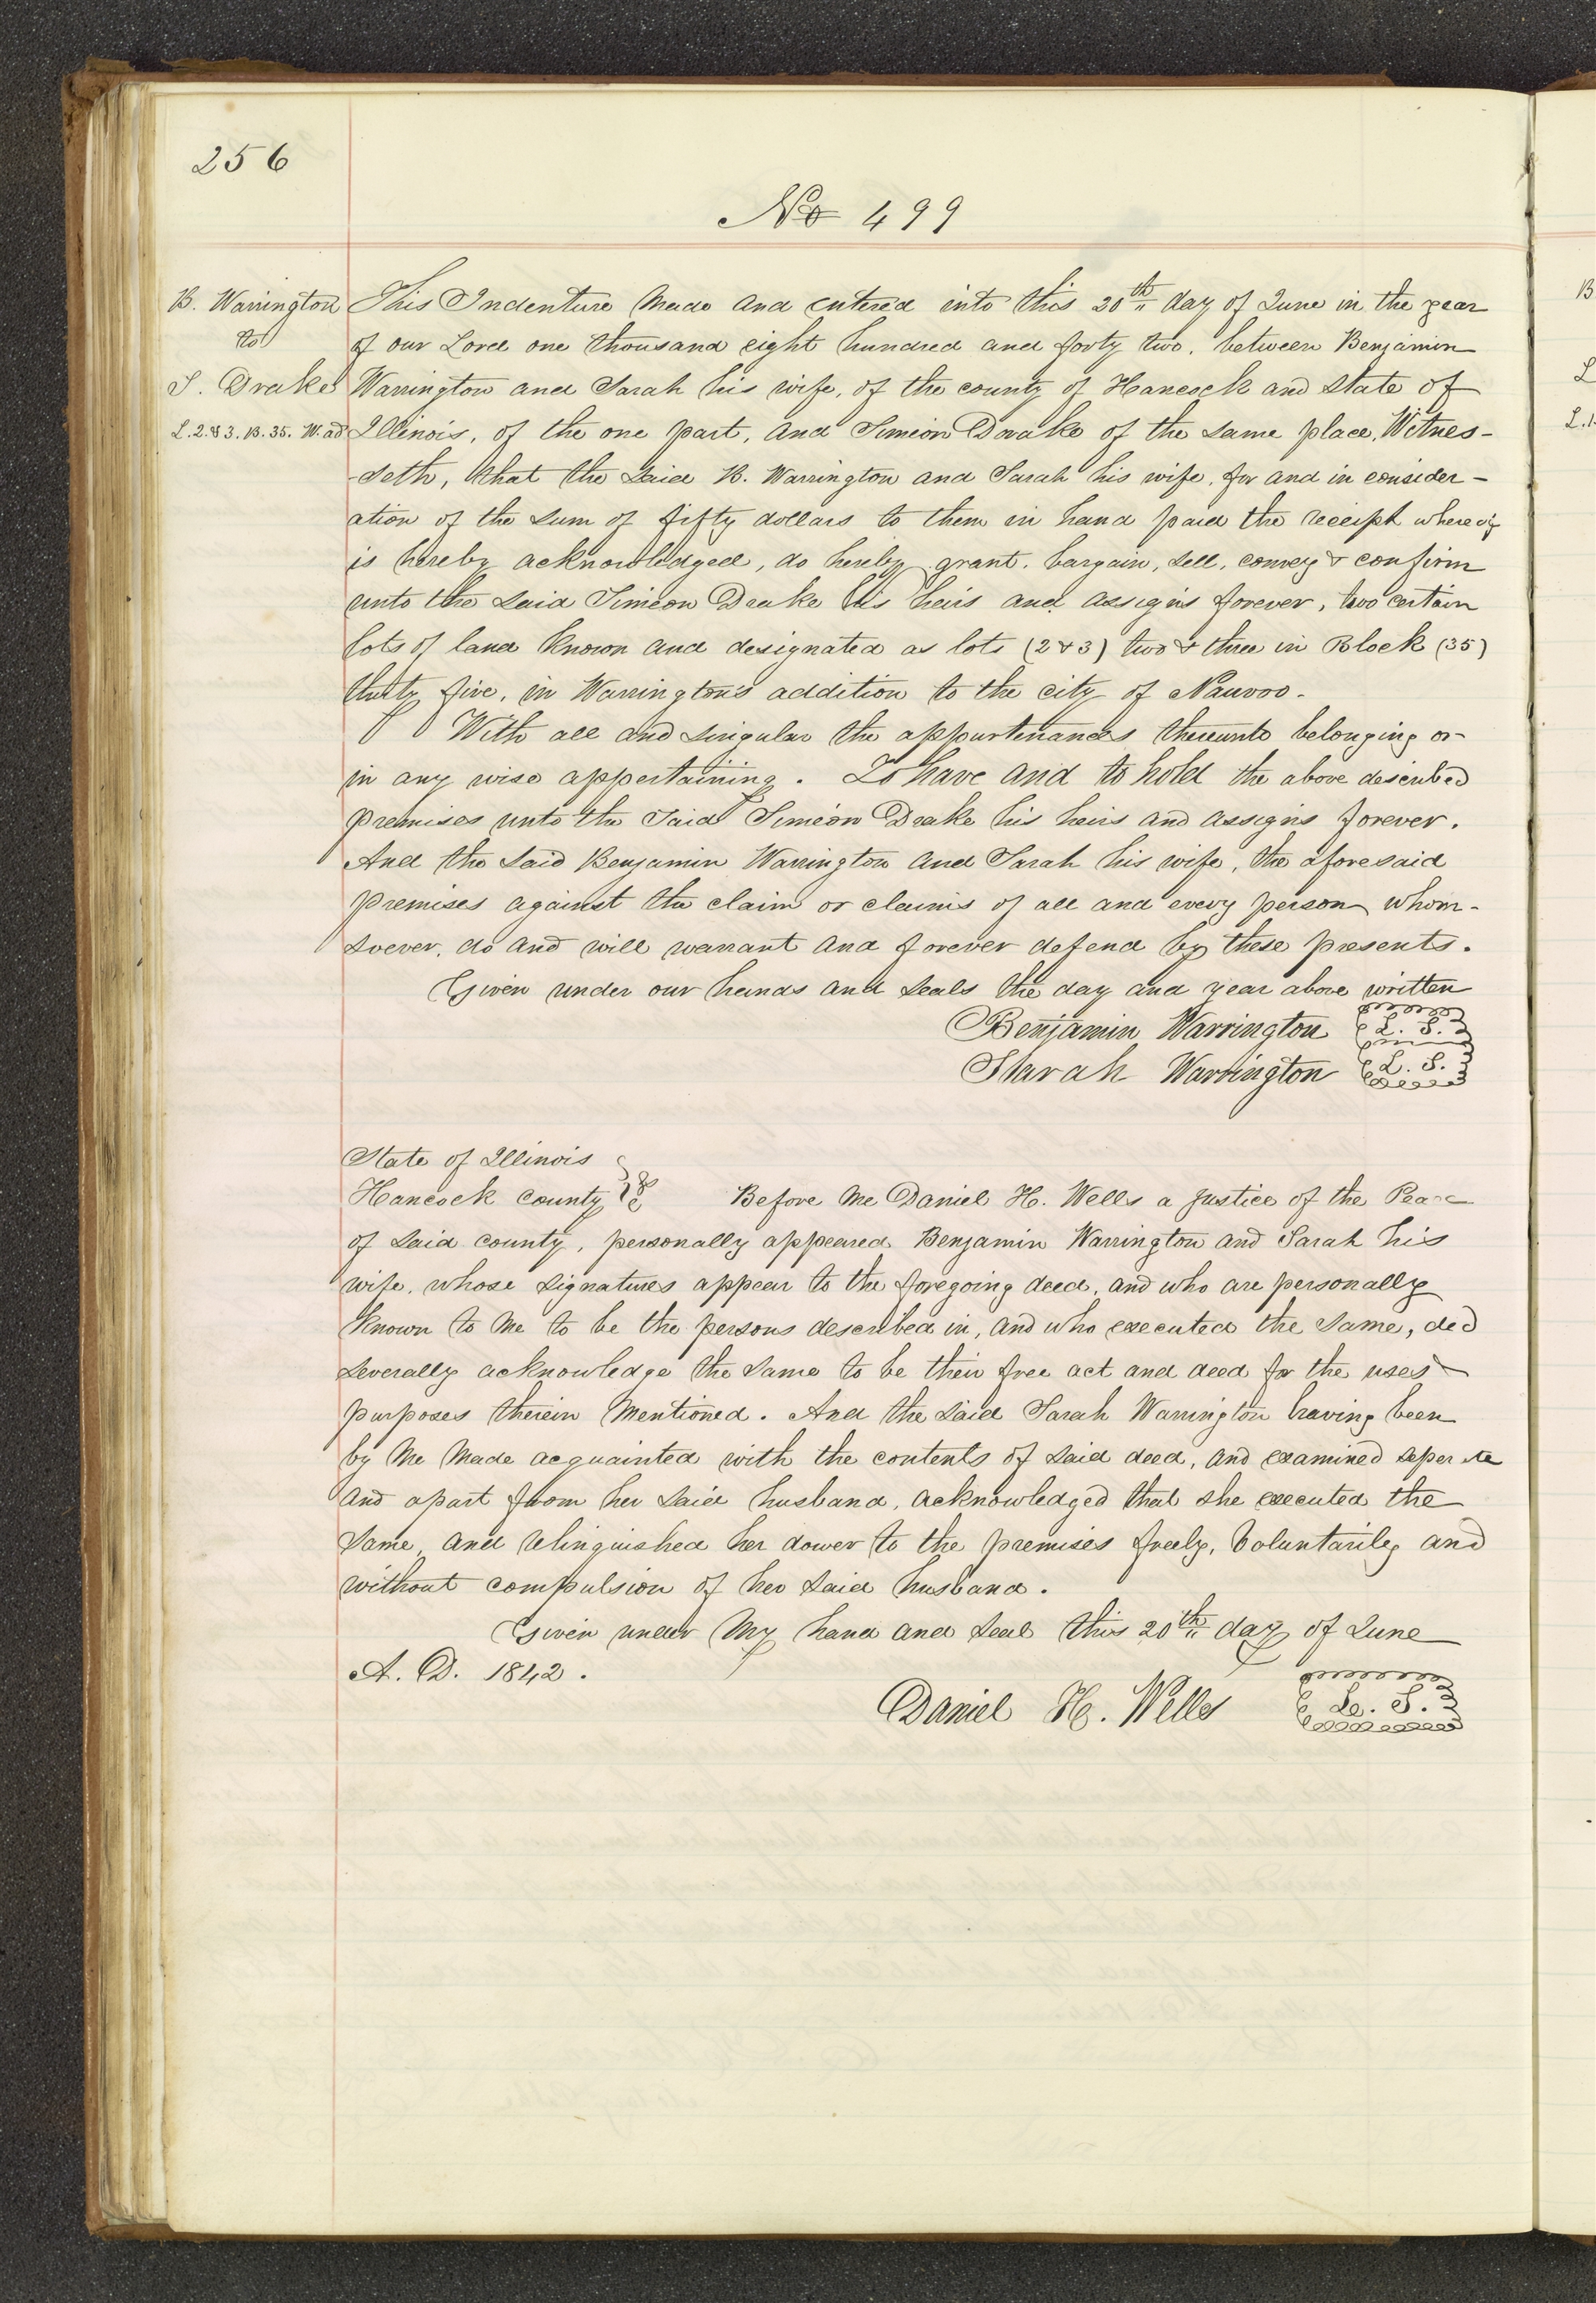 256
No 499
B. Warrington
to
S. Drake
L. 2. & 3. B. 35. W. ad
This Indenture Made and entered into this 20th day of June in the year
of our Lord one thousand eight hundred and forty two, between Benjamin
Warrington and Sarah his wife, of the county of Hancock and State of
Illinois, of the one part, and Simeon Drake of the same place, Witnes-
-seth, that the said B. Warrington and Sarah his wife, for and in consider-
ation of the sum of fifty dollars to them in hand paid the receipt whereof
is hereby acknowledged, do hereby grant, bargain, sell, convey & confirm
unto the said Simeon Drake his heirs and assigns forever, two certain
lots of land known and designated as lots (2 & 3) two & three in Block (35)
thirty five, in Warrington's addition to the city of Nauvoo.
With all and singular the appurtenances thereunto belonging or
in any wise appertaining. To have and to hold the above described
premises unto the Said Simeon Drake his heirs and assigns forever.
And the said Benjamin Warrington and Sarah his wife, the aforesaid
premises against the claim or claims of all and every person whom-
soever, do and will warrant and forever defend by these presents.
Given under our hands and seals the day and year above written
Benjamin Warrington L. S.
Sarah Warrington L. S.
State of Illinois
Hancock county Before me Daniel H. Wells a justice of the Peace
of said county, personally appeared Benjamin Warrington and Sarah his
wife, whose signatures appear to the foregoing deed, and who are personally
known to me to be the persons described in, and who executed the same, did
severally acknowledge the same to be their free act and deed for the uses &
purposes therein mentioned. And the said Sarah Warrington having been
by me made acquainted with the contents of said deed, and examined seperate
and apart from her said husband, acknowledged that she executed the
same, and relinquished her dower to the premises freely, voluntarily and
without compulsion of her said husband.
Given under my hand and seal this 20th day of June
A. D. 1842.
Daniel H. Wells L. S.
B
L
L.